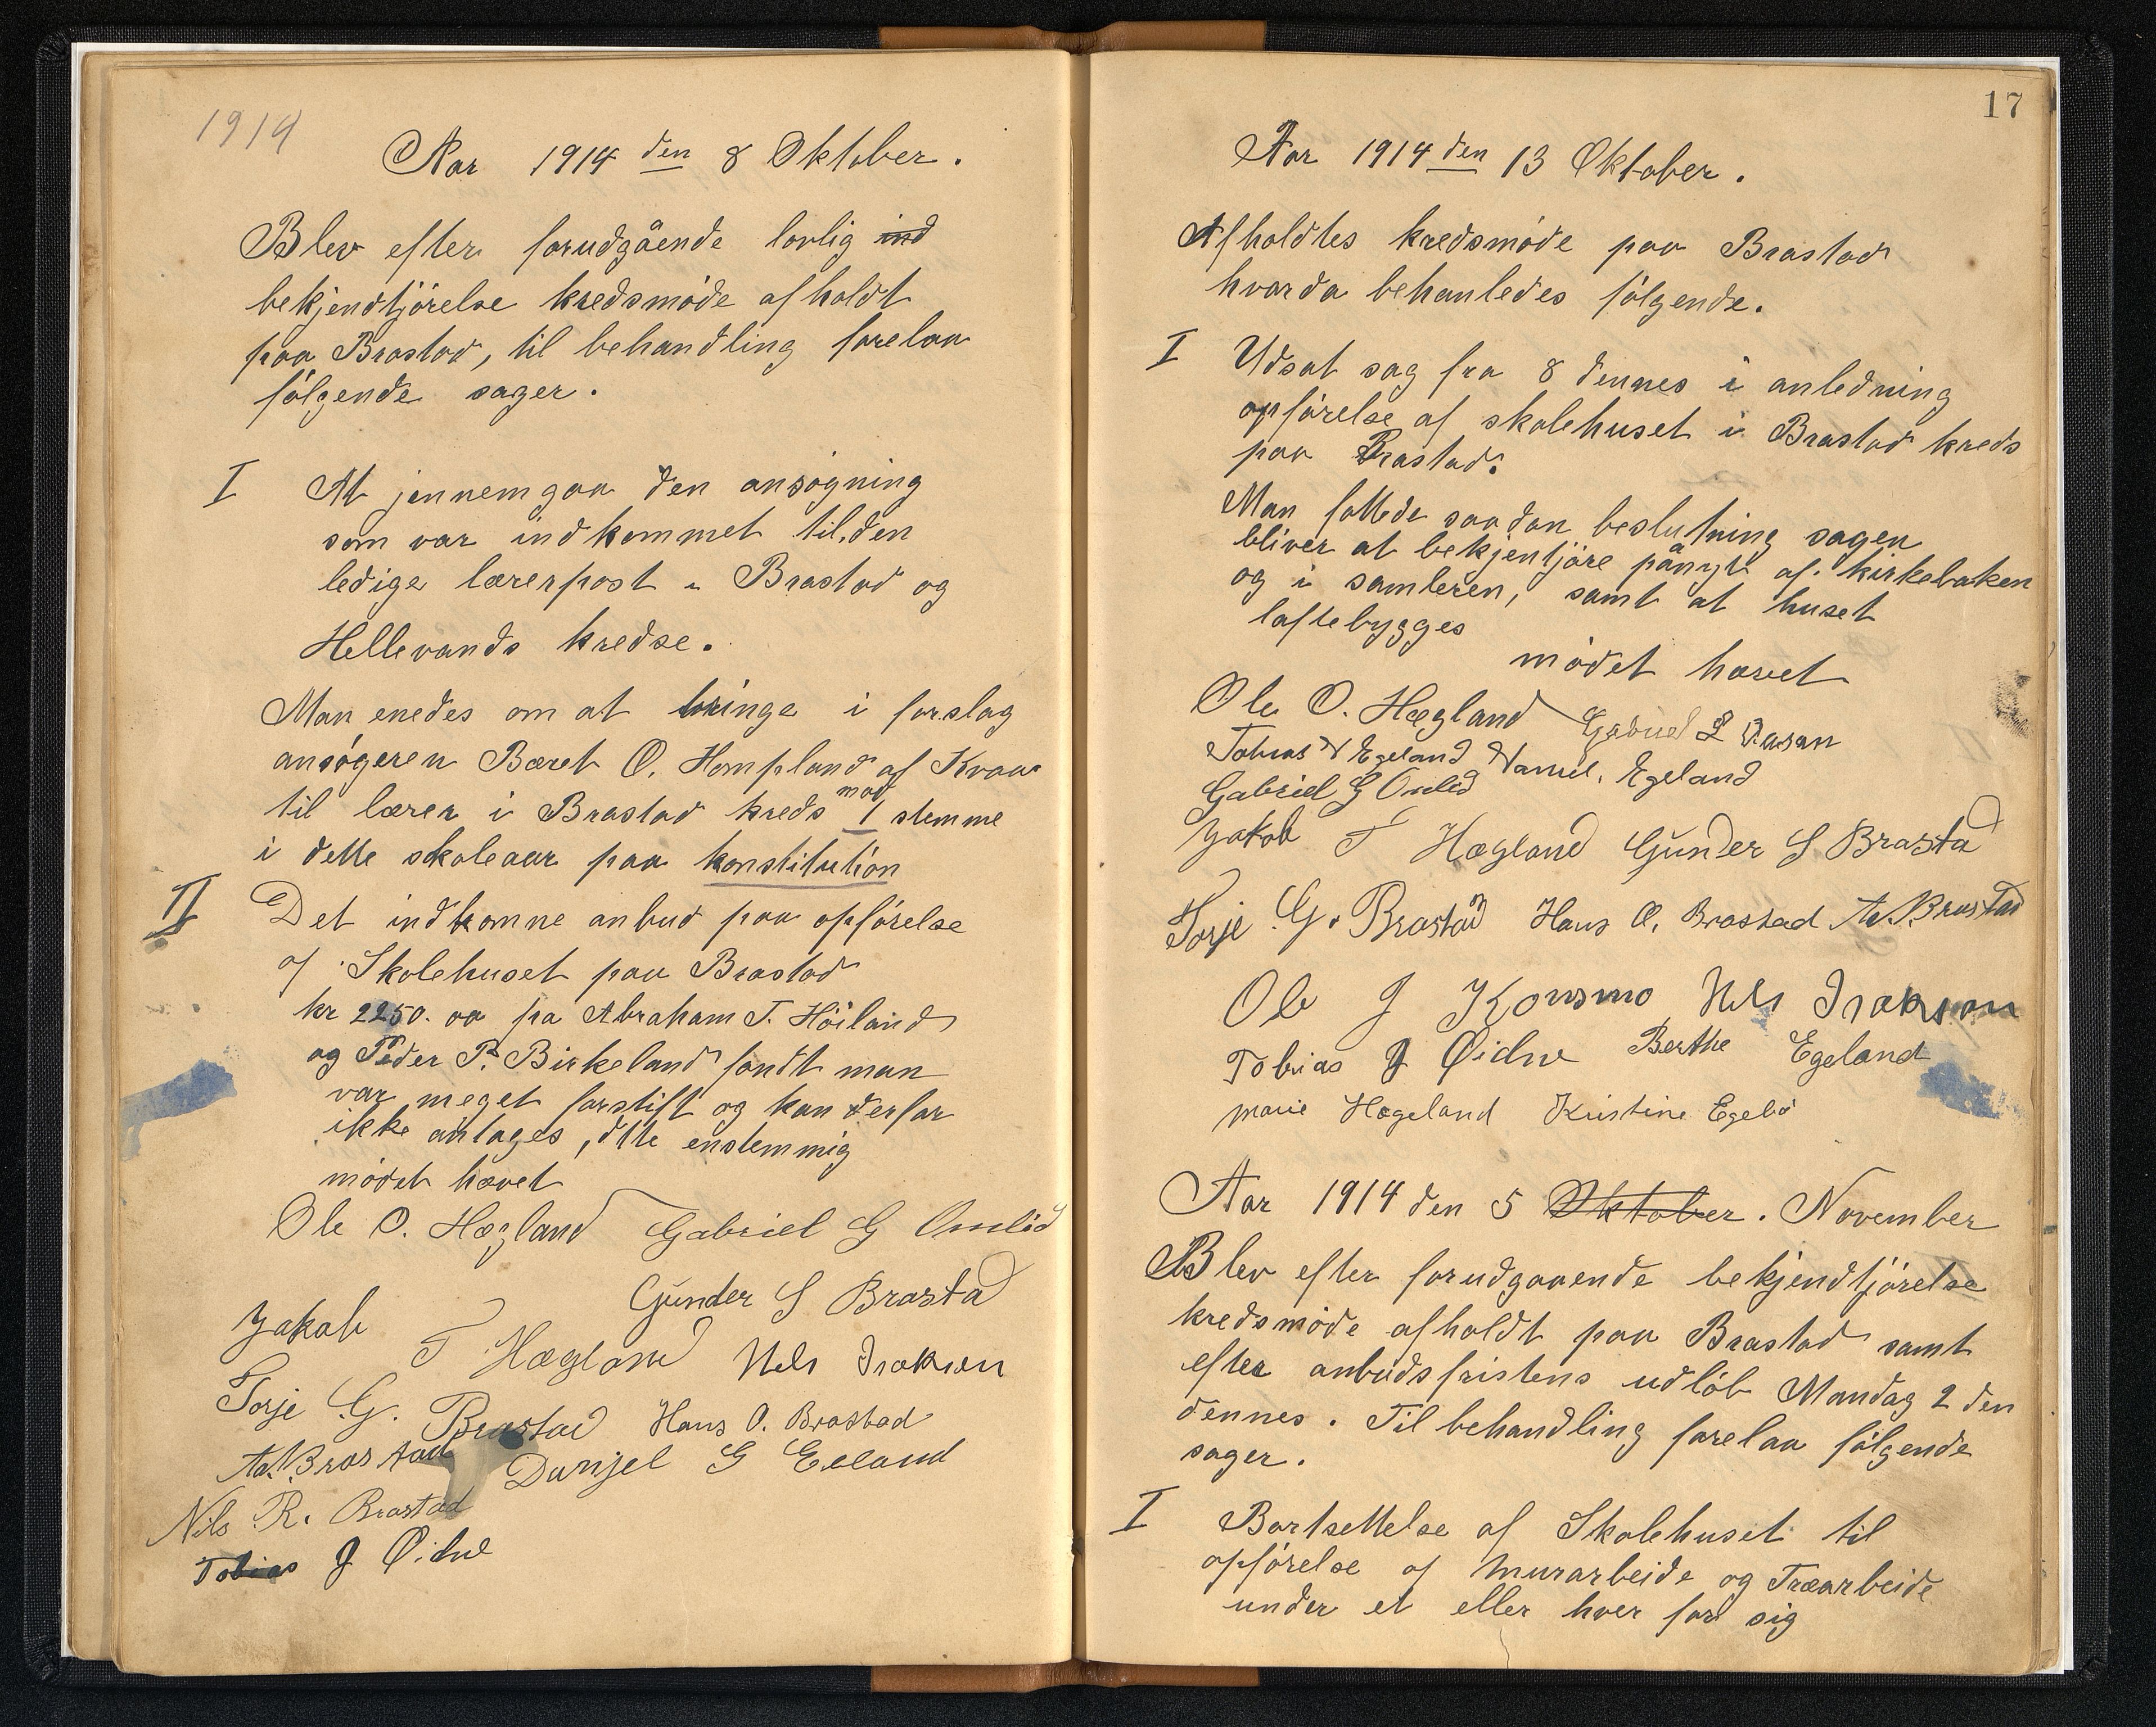 1914
Aar 1914 den 8 Oktober.
Blev efter forudgående lovlig ind
bekjendtjörelse kredsmöde afholdt
paa Brastad, til behandling forelaa
fölgende sager.
I At jennemgaa den ansögning
som var indkommet til den
ledige lærerpost i Brastad og
Hellevands kredse.
Man enedes om at bringe i forslag
ansögeren Bæret O. Hompland af Kvaas
til lærer i Brastad kreds mod 1 stemme
i dette skoleaar paa konstitution
II Det indkomne anbud paa opförelse
af Skolehuset paa Brastad
kr 2250.00 fra Abraham T. Höiland
og Peder P. Birkeland fandt man
var meget forstift og kan derfor
ikke antages, dtte enstemmig
mödet hævet
Ole O. Hægland Gabriel G Omlid
Gunder S Brastad
Jakob T Hægland Nels Isaksen
Torje G. Brastad Hans O. Brastad
A. Brastad Danjel G Eeland
Nils R. Brastad
Tobias J Öidne
17
Aar 1914 den 13 Oktober.
Afholdtes kredsmöde paa Brastad
hvorda behanledes fölgende.
I Udsat sag fra 8 dennes i anledning
opförelse af skolehuset i Brastad kreds
paa Brastad.
Man fattede saadan beslutning sagen
bliver at bekjentjöre pånyt af kirkebaken
og i samleren, samt at huset
laftebygges
mödet hævet
Ole O. Hægland Gabriel L
Tobias Egeland Daniel. Egeland
Gabriel G Omlid
Jakob T Hægland Gunder S Brastad
Torje G. Brastad Hans O. Brastad A. Brastad
Ole J Konsmo Nels Isaksen
Tobias J Öidne Berthe Egeland
Marie Hægeland Kristine Egelo
Aar 1914 den 5 Oktober. November
Blev efter forudgaaende bekjendtjörelse
kredsmöde afholdt paa Brastad samt
efter anbudsfristens udlöb Mandag 2 den
dennes. Til behandling forelaa fölgende
sager.
I Bortsettelse af Skolehuset til
opförelse af Murarbeide og Træarbeide
under et eller hver for sig